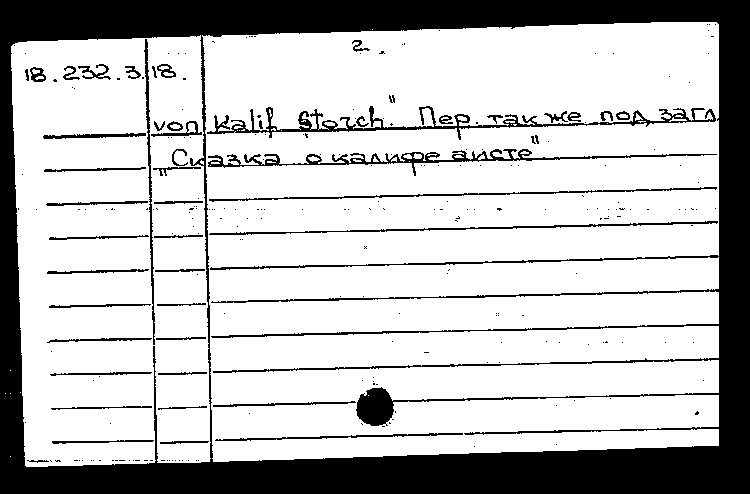 2.
18.232.3.18.
von Kalif Storch." Пер. также под загл
"Сказка о калифе аисте"